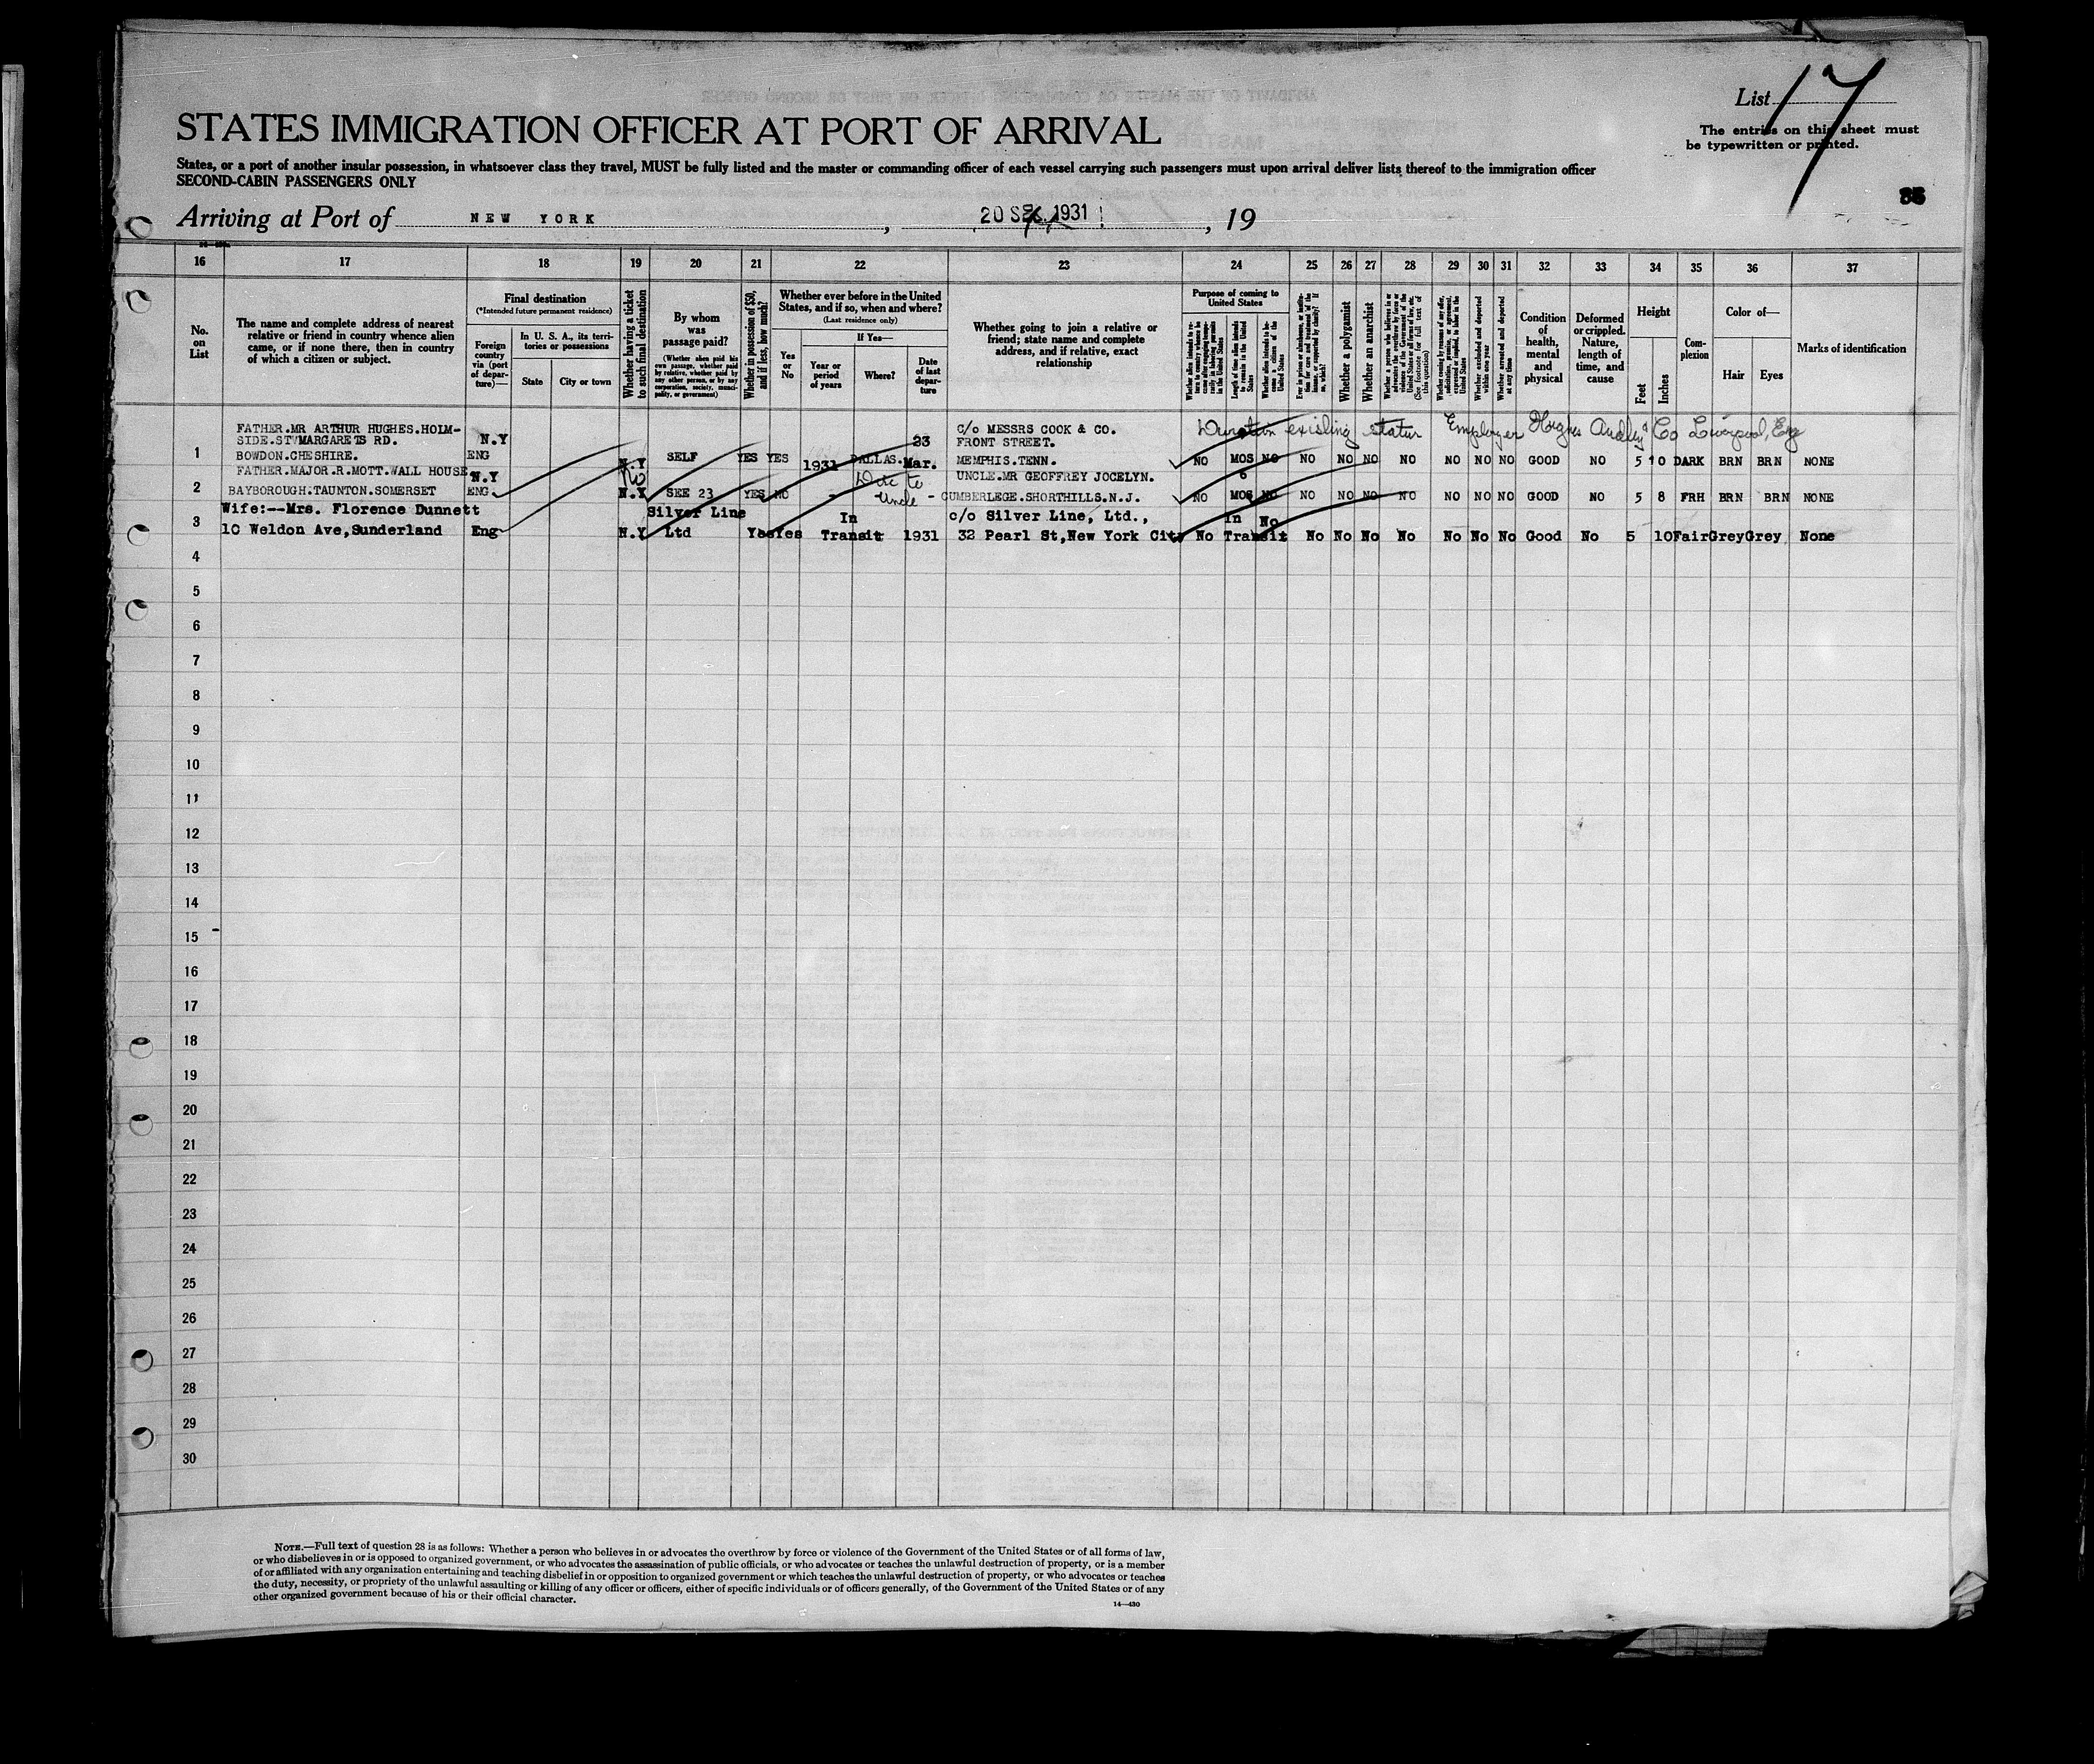 List 17
The entries on this sheet must
be typewritten or printed.
STATES IMMIGRATION OFFICER AT PORT OF ARRIVAL
States, or a port of another insular possession, in whatsoever class they travel, MUST be fully listed and the master or commanding officer of each vessel carrying such passengers must upon arrival deliver lists thereof to the immigration officer
SECOND-CABIN PASSENGERS ONLY
Arriving at Port of NEW YORK, 20 1931, 19
16 17 18 19 20 21 22 23 24 25 26 27 28 29 30 31 32 33 34 35 36 37
No. on List
The name and complete address of nearest relative or friend in country whence alien came, or if none there, then in country of which a citizen or subject.
Final destination
(*Intended future permanent residence)
Foreign country via (port of departure)—
In U. S. A., its territories or possessions
State
City or town
Whether having a ticket to such final destination
By whom was passage paid?
(Whether alien paid his own passage, whether paid by relative, whether paid by any other person, or by any corporation, society, municipality, or government)
Whether in possession of $50, and if less, how much?
Whether ever before in the United States, and if so, when and where?
(Last residence only)
Yes or No
If Yes—
Year or period of years
Where?
Date of last departure
Whether going to join a relative or friend; state name and complete address, and if relative, exact relationship
Purpose of coming to United States
Whether a polygamist
Whether an anarchist
Whether excluded and deported within one year
Whether arrested and deported at any time
Condition of health, mental and physical
Deformed or crippled. Nature, length of time, and cause
Height
Feet
Inches
Complexion
Color of—
Hair
Eyes
Marks of identification
Duration existing status Employer Hughes Co Liverpool, Eng
1 FATHER.MR ARTHUR HUGHES.HOLM-
SIDE.ST MARGARETS RD.
BOWDON.CHESHIRE. N.Y ENG N.Y SELF YES YES 1931 DALLAS. 23 Mar. C/O MESSRS COOK & CO.
FRONT STREET.
MEMPHIS.TENN. NO MOS NO NO NO NO NO NO NO NO GOOD NO 5 10 DARK BRN BRN NONE
2 FATHER.MAJOR.R.MOTT.WALL HOUSE
BAYBOROUGH.TAUNTON.SOMERSET N.Y ENG N.Y SEE 23 YES NO - Uncle - UNCLE.MR GEOFFREY JOCELYN.
CUMBERLEGE.SHORTHILLS.N.J. NO 6 MOS NO NO NO NO NO NO NO NO GOOD NO 5 8 FRH BRN BRN NONE
3 Wife:--Mrs. Florence Dunnett
10 Weldon Ave,Sunderland Eng N.Y Silver Line Ltd Yes Yes In Transit 1931 c/o Silver Line, Ltd.,
32 Pearl St,New York City No In Transit No No No No No No No No Good No 5 10 Fair Grey Grey None
4
5
6
7
8
9
10
11
12
13
14
15
16
17
18
19
20
21
22
23
24
25
26
27
28
29
30
NOTE.—Full text of question 28 is as follows: Whether a person who believes in or advocates the overthrow by force or violence of the Government of the United States or of all forms of law,
or who disbelieves in or is opposed to organized government, or who advocates the assassination of public officials, or who advocates or teaches the unlawful destruction of property, or is a member
of or affiliated with any organization entertaining and teaching disbelief in or opposition to organized government or which teaches the unlawful destruction of property, or who advocates or teaches
the duty, necessity, or propriety of the unlawful assaulting or killing of any officer or officers, either of specific individuals or of officers generally, of the Government of the United States or of any
other organized government because of his or their official character.
14—430